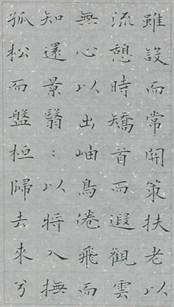 雖設而常關策扶老以
流憩時矯首而遐觀雲
無心以出岫鳥倦飛而
知還景翳〻以將入撫
孤松而盤桓歸去來兮